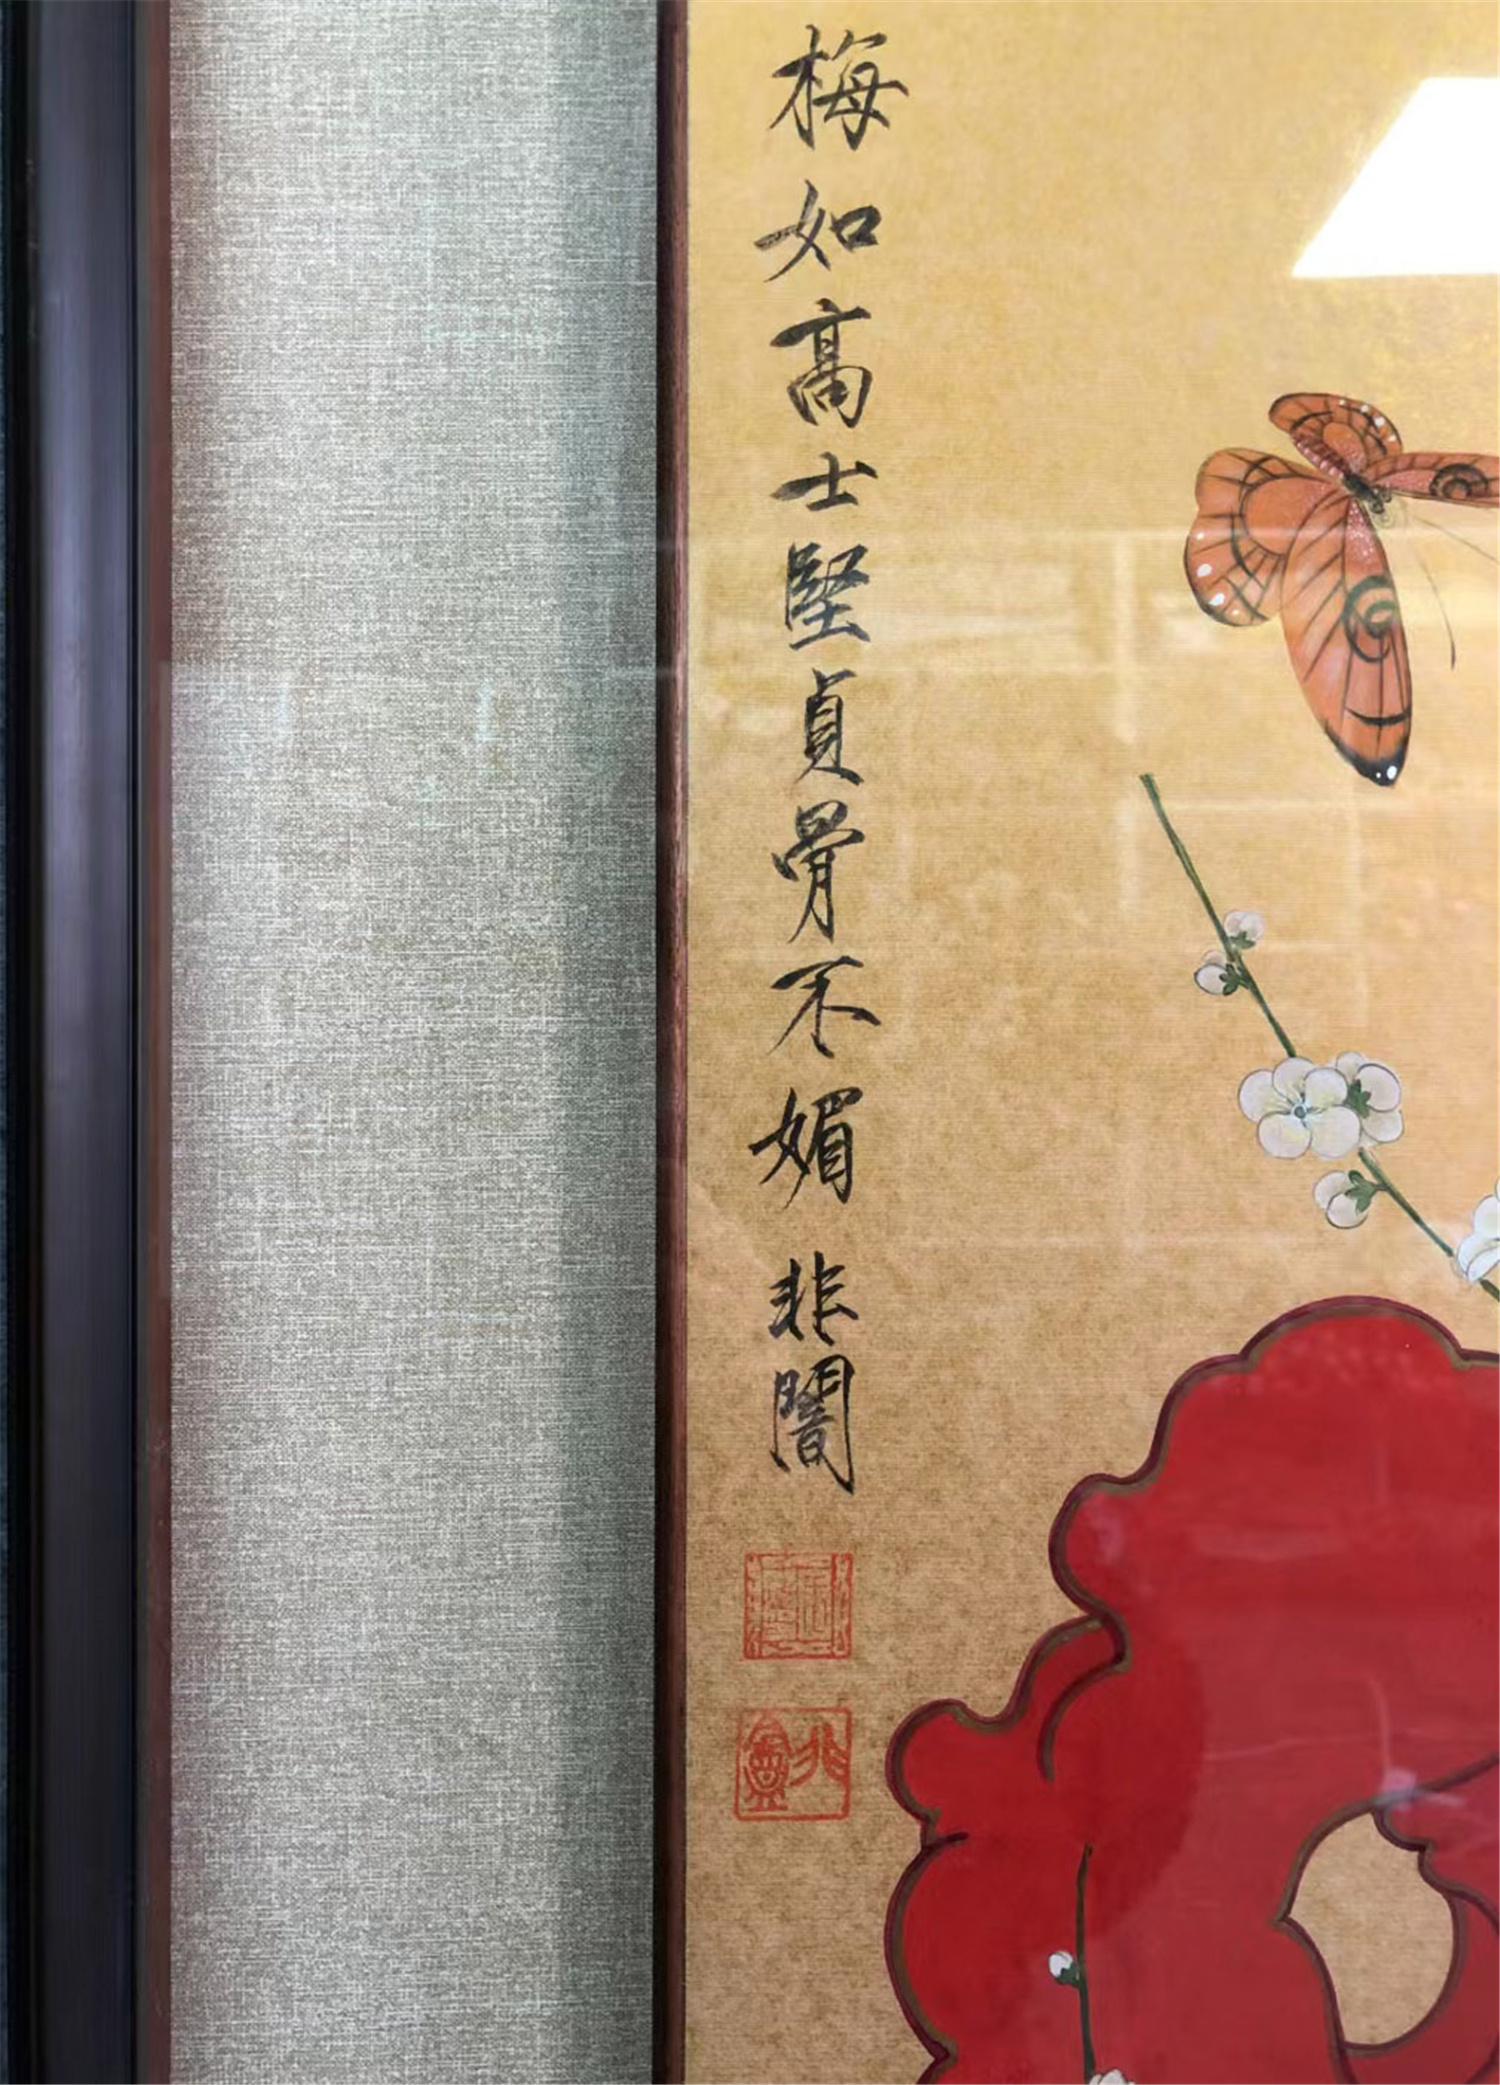 梅如高士堅貞骨不媚 非闇